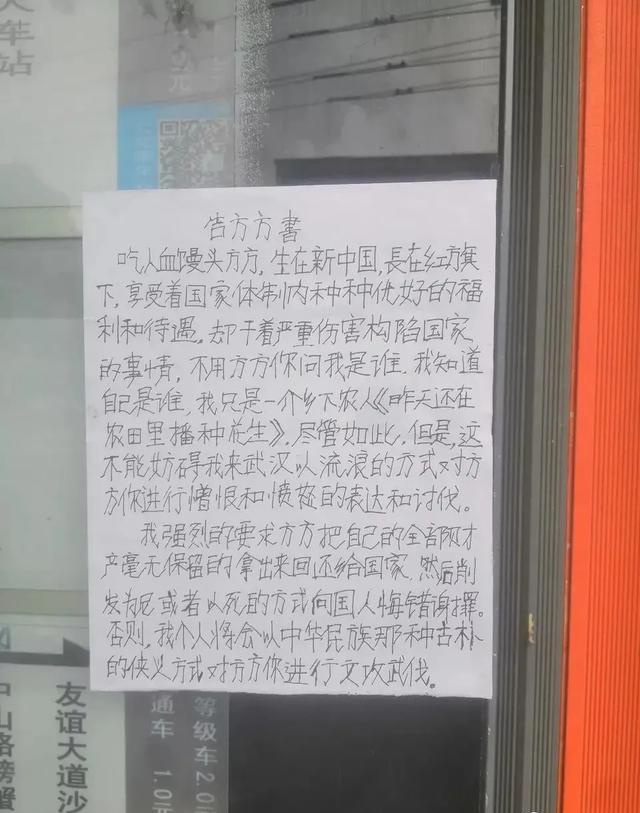 火车站
0元
告方方書
吃人血馒头方方,生在新中国,長在红旗
下,享受着国家体制内种种优好的福
利和待遇,却干着严重伤害构陷国家
的事情,不用方方你问我是谁,我知道
自己是谁,我只是一个乡下农人《昨天还在
农田里播种花生》,尽管如此,但是,这
不能妨碍我来武汉以流浪的方式对方
方你进行憎恨和愤怒的表达和讨伐。
我强烈的要求方方把自己的全部财才
产毫无保留的拿出来回还给国家,然后削
发为尼或者以死的方式向国人悔错谢罪。
否则,我个人将会以中华民族那种古朴
的侠义方式对方方你进行文攻武伐。
中山路螃蟹
友谊大道沙
通车 1.0元
等级车2.0元